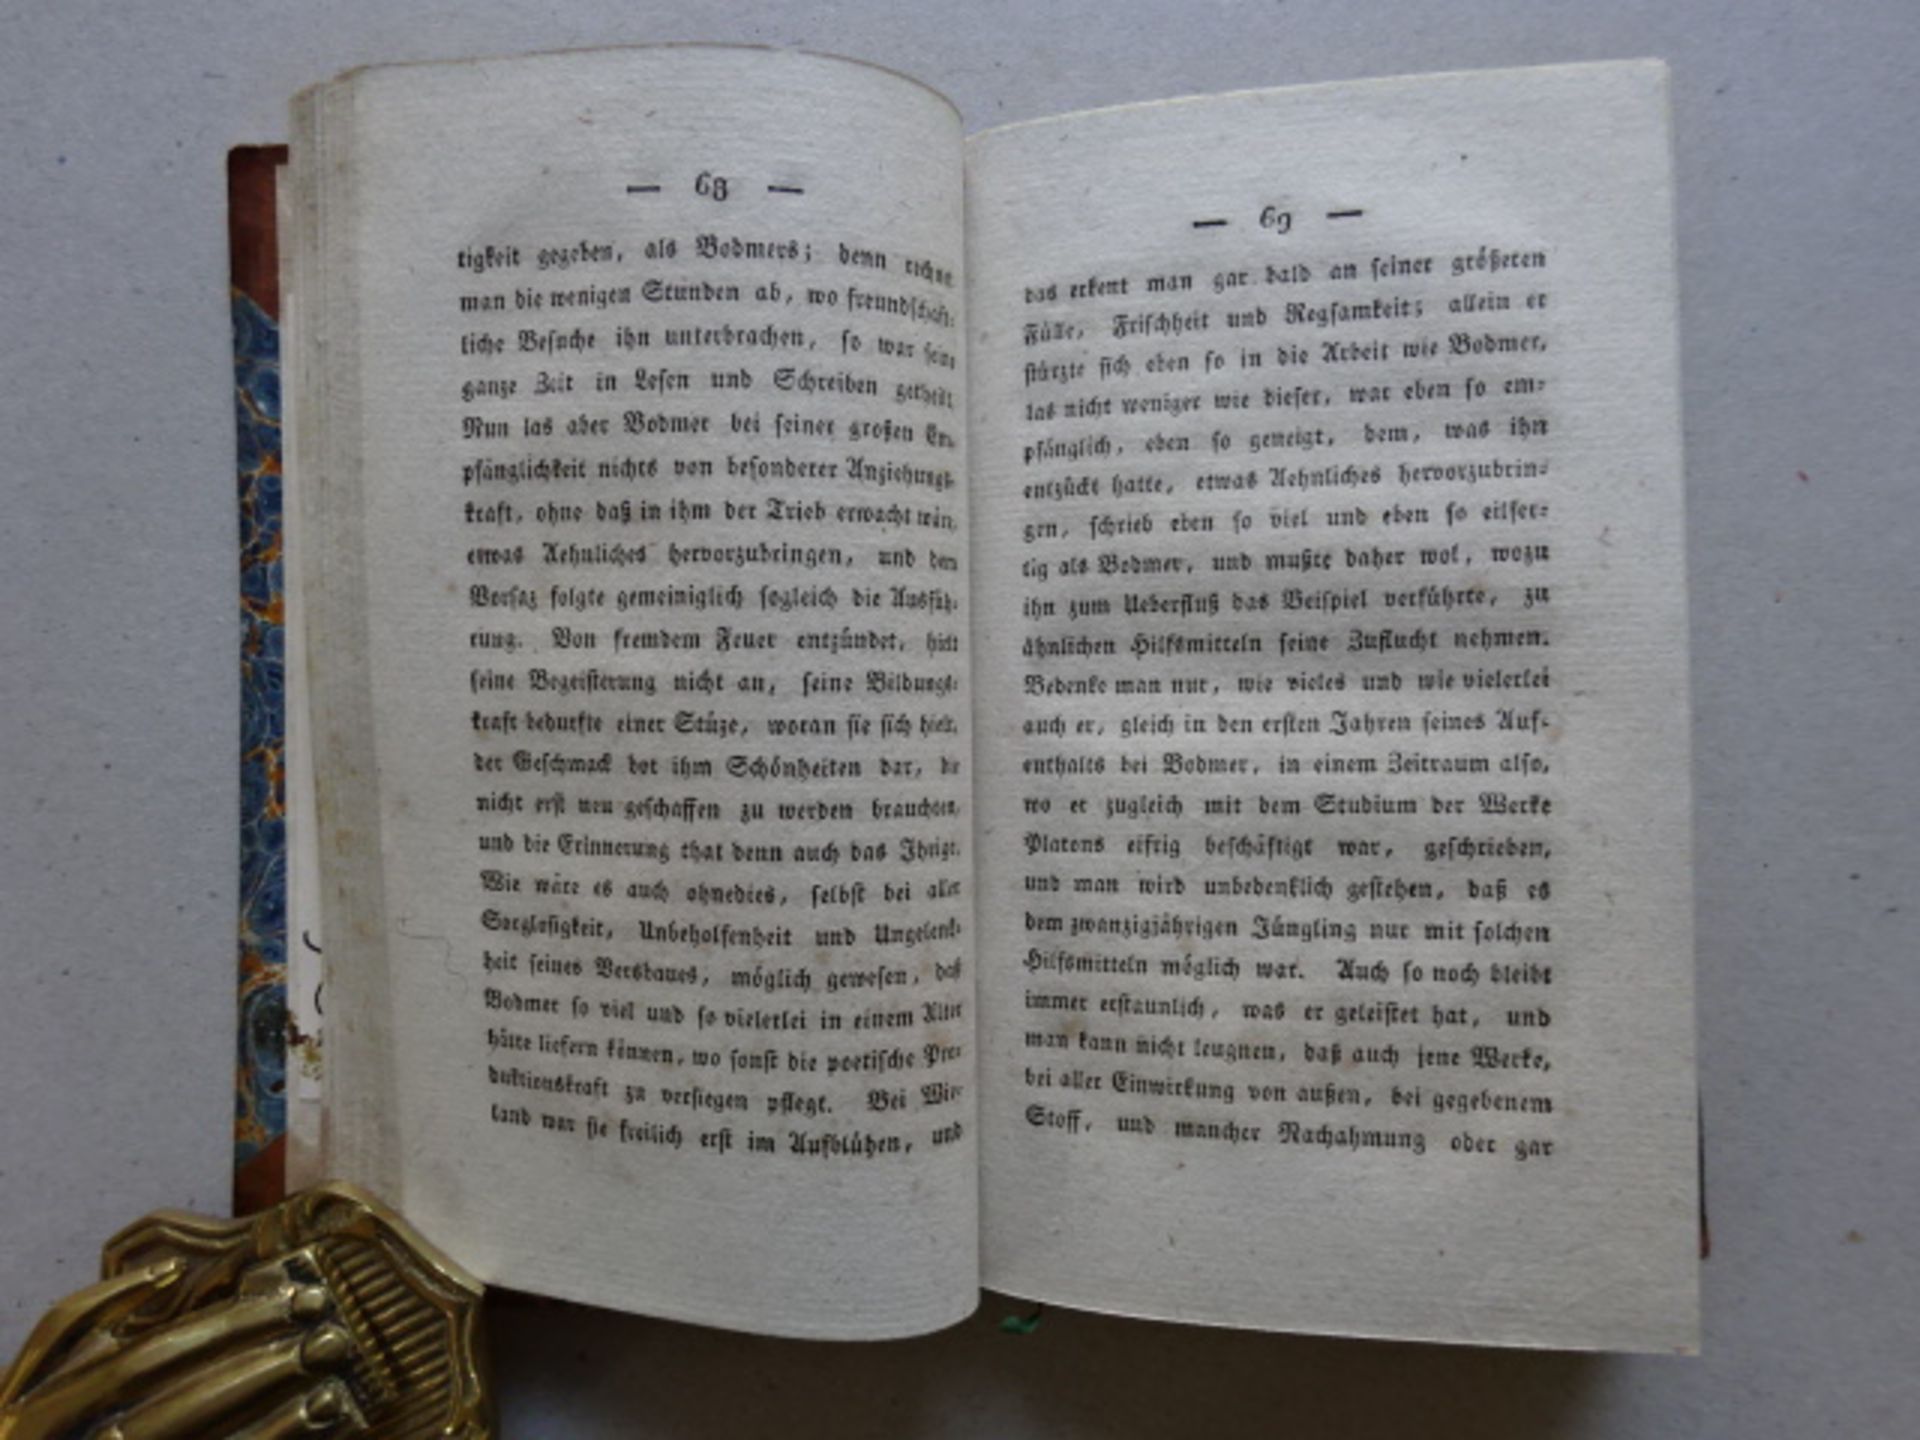 — 68 —
tigkeit gegeben, als Bodmers; denn rechne
man die wenigen Stunden ab, wo freundschaft-
liche Besuche ihn unterbrachen, so war seine
ganze Zeit in Lesen und Schreiben getheilt
Nun las aber Bodmer bei seiner großen Em-
pfänglichkeit nichts von besonderer Anziehungs-
kraft, ohne daß in ihm der Trieb erwacht wär,
etwas Aehnliches hervorzubringen, und dem
Vorsaz folgte gemeiniglich sogleich die Ausfüh-
rung. Von fremdem Feuer entzündet, hielt
seine Begeisterung nicht an, seine Bildungs-
kraft bedurfte einer Stüze, woran sie sich hielt,
der Geschmack bot ihm Schönheiten dar, die
nicht erst neu geschaffen zu werden brauchten,
und die Erinnerung that denn auch das Ihrige.
Wie wäre es auch ohnedies, selbst bei aller
Sorglosigkeit, Unbeholfenheit und Ungelenk-
heit seines Versbaues, möglich gewesen, daß
Bodmer so viel und so vielerlei in einem Alter
hätte liefern können, wo sonst die poetische Pro-
duktionskraft zu versiegen pflegt. Bei Wie-
land war sie freilich erst im Aufblühen, und
— 69 —
das erkent man gar bald an seiner größeren
Fülle, Frischheit und Regsamkeit; allein er
stürzte sich eben so in die Arbeit wie Bodmer,
las nicht weniger wie dieser, war eben so em-
pfänglich, eben so geneigt, dem, was ihn
entzückt hatte, etwas Aehnliches hervorzubrin-
gen, schrieb eben so viel und eben so eilfer-
tig als Bodmer, und mußte daher wol, wozu
ihn zum Ueberfluß das Beispiel verführte, zu
ähnlichen Hilfsmitteln seine Zuflucht nehmen.
Bedenke man nur, wie vieles und wie vielerlei
auch er, gleich in den ersten Jahren seines Auf-
enthalts bei Bodmer, in einem Zeitraum also,
wo er zugleich mit dem Studium der Werke
Platons eifrig beschäftigt war, geschrieben,
und man wird unbedenklich gestehen, daß es
dem zwanzigjährigen Jüngling nur mit solchen
Hilfsmitteln möglich war. Auch so noch bleibt
immer erstaunlich, was er geleistet hat, und
man kann nicht leugnen, daß auch jene Werke,
bei aller Einwirkung von außen, bei gegebenem
Stoff, und mancher Nachahmung oder gar